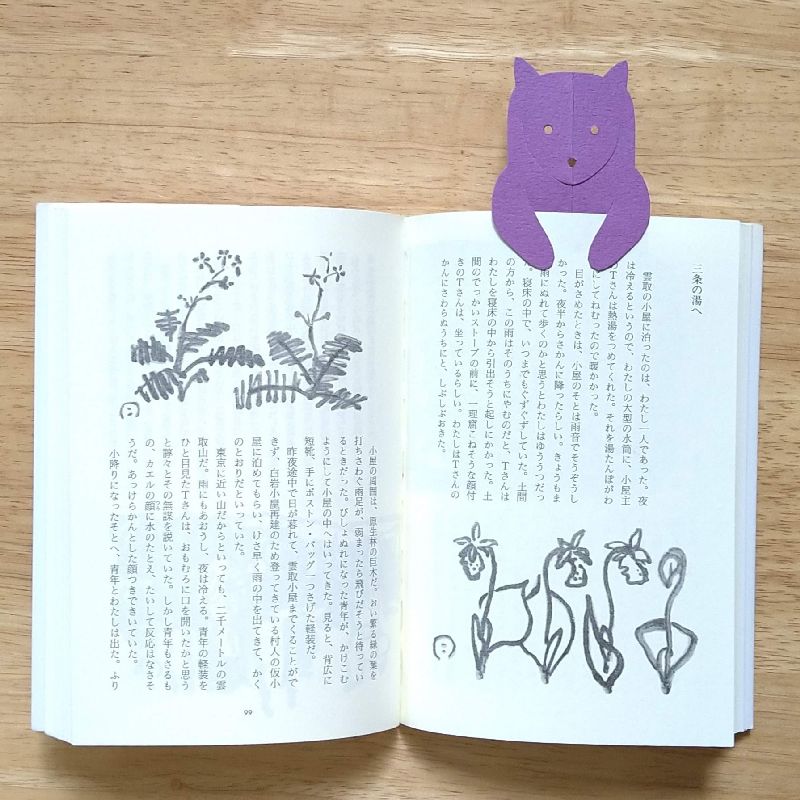 三条の湯へ
雲取の小屋に泊ったのは、わたし一人であった。夜
は冷えるというので、わたしの大型の水筒に、小屋主
のTさんは熱湯をつめてくれた。それを湯たんぽがわ
にしてねむったので暖かかった。
目がさめたときは、小屋のそとは雨音でそうぞうし
かった。夜半からさかんに降ったらしい。きょうもま
雨にぬれて歩くのかと思うとわたしはゆううつだっ
た。寝床の中で、いつまでもぐずぐずしていた。土間
の方から、この雨はそのうちにやむのだと、Tさんは
わたしを寝床の中から引出そうと起しにかかった。土
間のでっかいストーブの前に、一理窟こねそうな顔付
きのTさんは、坐っているらしい。わたしはTさんの
かんにさわらぬうちにと、しぶしぶおきた。
小屋の周囲は、原生林の巨木だ。おい繁る緑の葉を
打ちさわぐ雨足が、弱まったら飛びだそうと待ってい
るときだった。びしょぬれになった青年が、かけこむ
ようにして小屋の中へはいってきた。見ると、背広に
短靴、手にボストン・バッグ一つさげた軽装だ。
昨夜途中で日が暮れて、雲取小屋までくることがで
きず、白岩小屋再建のため登ってきている村人の仮小
屋に泊めてもらい、けさ早く雨の中を出てきて、かく
のとおりだといっていた。
東京に近い山だからといっても、二千メートルの雲
取山だ。雨にもあおうし、夜は冷える。青年の軽装を
ひと目見たTさんは、おもむろに口を開いたかと思う
と諄々とその無謀を説いていた。しかし青年もさるも
の、カエルの顔に水のたとえ、たいして反応はなさそ
うだ、あっけらかんとした顔つきできいていた。
小降りになったそとへ、青年とわたしは出た。ふり
99